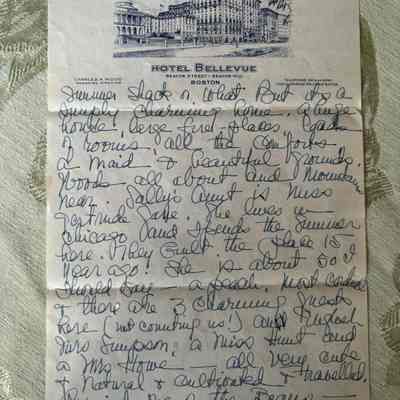 HOTEL BELLEVUE
BEACON STREET · BEACON HILL
BOSTON
Summer Shack or what. But it's a
simply charming home. A huge
house, large fire places, loads
of rooms, all the comforts
a maid & beautiful grounds.
Woods all about and Mountains
near. Sally's Aunt is Miss
Gertrude. She lives in
Chicago and spends the summer
here. They built the place 15
years ago. She is about 50 I
should say — a peach. Most cordial
& there are 3 charming guests
here (not counting us!) an English
Mrs Simpson, a Miss Hunt and
a Mrs Howe — all very cute
& natural & cultivated & travelled.